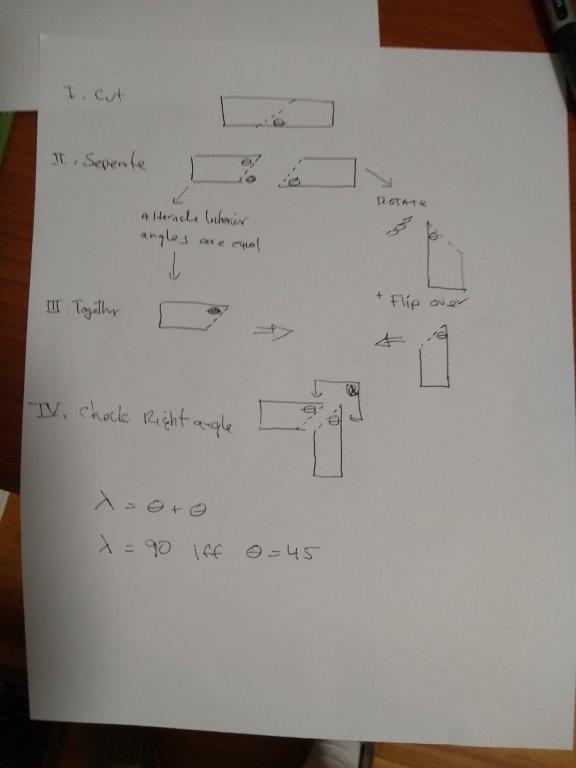 I. Cut
θ
II. Seperate
θ
θ
θ
ROTATE
Alternate Interior
angles are equal
θ
III. Togethr
θ
+ Flip over
θ
IV. Check Right angle
θ
θ
λ = θ + θ
λ = 90 iff θ = 45